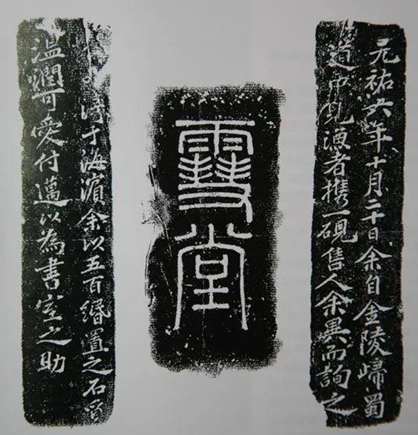 元祐六年十月二十日余自金陵歸蜀
道中見漁者携一硯售人余異而詢之
雪堂
得于海濱余以五百緡置之石質
温潤可愛付邁以為書室之助